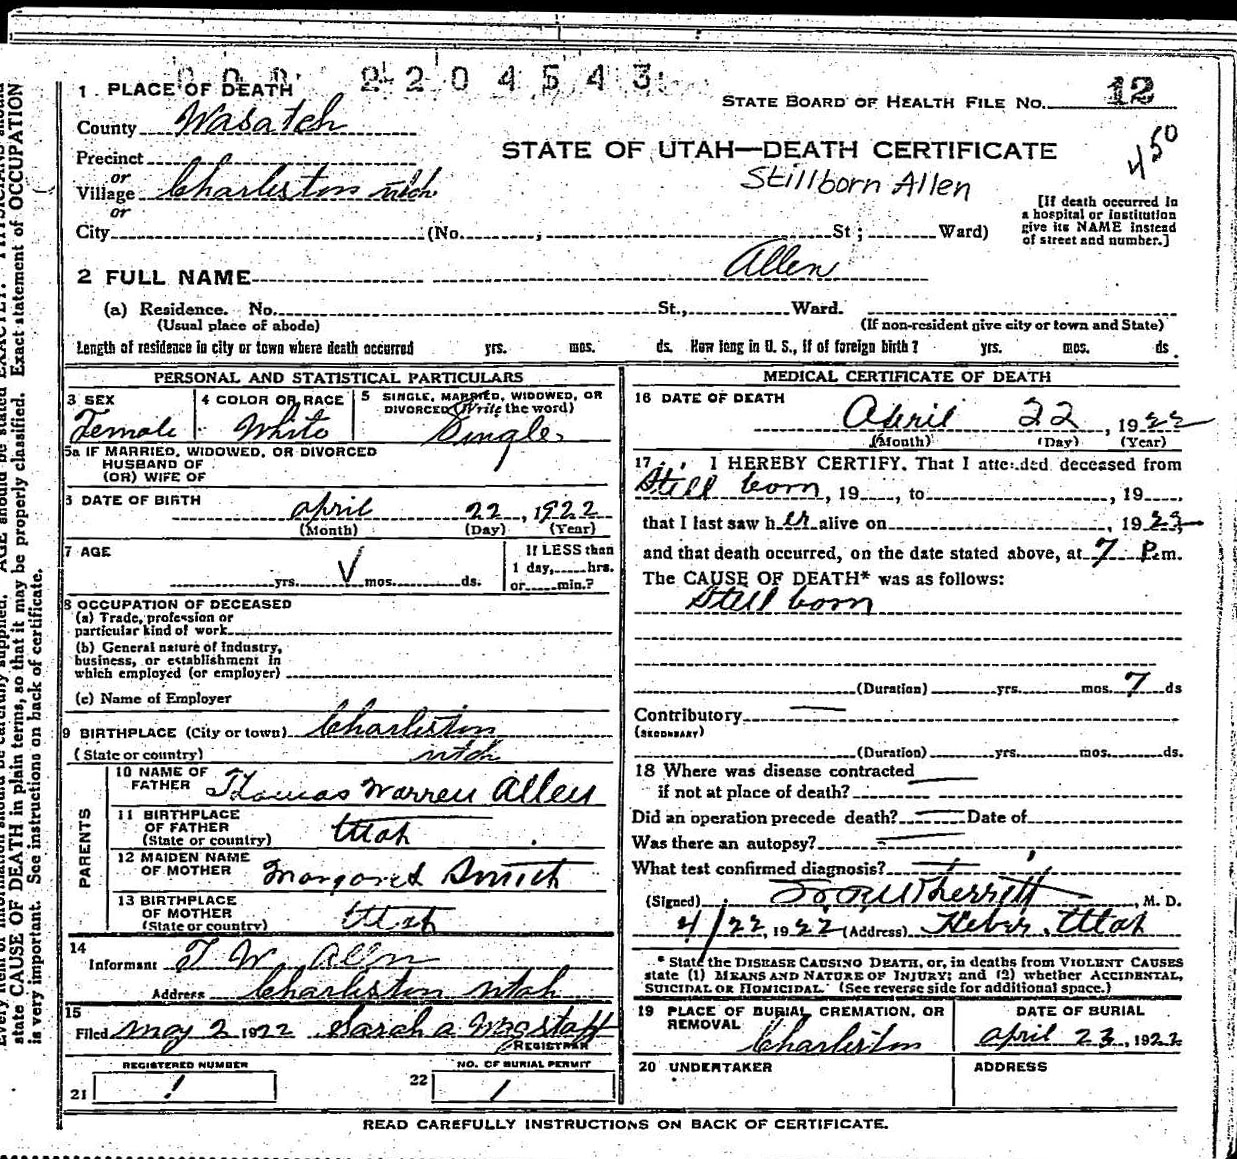 2204543
1 PLACE OF DEATH
STATE BOARD OF HEALTH FILE No. 12
County Wasatch
450
STATE OF UTAH—DEATH CERTIFICATE
Precinct
or
Village Charleston Utah
Stillborn Allen
or
[If death occurred in
a hospital or institution
give its NAME instead
of street and number.]
City (No. , St; Ward)
2 FULL NAME Allen
(a) Residence. No. St., Ward.
(Usual place of abode) (If non-resident give city or town and State)
Length of residence in city or town where death occurred yrs. mos. ds. How long in U. S., if of foreign birth? yrs. mos. ds.
PERSONAL AND STATISTICAL PARTICULARS
3 SEX
Female
4 COLOR OR RACE
White
5 SINGLE, MARRIED, WIDOWED, OR
DIVORCED (Write the word)
Single
5a IF MARRIED, WIDOWED, OR DIVORCED
HUSBAND OF
(OR) WIFE OF
DATE OF BIRTH April 22, 1922
(Month) (Day) (Year)
7 AGE
yrs. mos. ds.
If LESS than
1 day, hrs.
or min.?
8 OCCUPATION OF DECEASED
(a) Trade, profession or
particular kind of work
(b) General nature of industry,
business, or establishment in
which employed (or employer)
(c) Name of Employer
9 BIRTHPLACE (City or town) Charleston
(State or country) Utah
PARENTS
10 NAME OF
FATHER Thomas Warren Allen
11 BIRTHPLACE
OF FATHER
(State or country) Utah
12 MAIDEN NAME
OF MOTHER Margaret Smith
13 BIRTHPLACE
OF MOTHER
(State or country) Utah
14
Informant T W Allen
Address Charleston Utah
15
Filed May 2 1922 Sarah a Wagstaff
REGISTRAR
REGISTERED NUMBER
21 1
NO. OF BURIAL PERMIT
22 1
MEDICAL CERTIFICATE OF DEATH
16 DATE OF DEATH
April 22, 1922
(Month) (Day) (Year)
17 I HEREBY CERTIFY, That I attended deceased from
Still born, 19 , to , 19
that I last saw her alive on , 1922
and that death occurred, on the date stated above, at 7 P.m.
The CAUSE OF DEATH* was as follows:
Still born
(Duration) yrs. mos. 7 ds
Contributory
(SECONDARY)
(Duration) yrs. mos. ds.
18 Where was disease contracted
if not at place of death?
Did an operation precede death? Date of
Was there an autopsy?
What test confirmed diagnosis?
(Signed) Wherritt, M. D.
4/22, 1922 (Address) Heber, Utah
* State the DISEASE CAUSING DEATH, or, in deaths from VIOLENT CAUSES
state (1) MEANS AND NATURE OF INJURY; and (2) whether ACCIDENTAL,
SUICIDAL OR HOMICIDAL. (See reverse side for additional space.)
19 PLACE OF BURIAL, CREMATION, OR
REMOVAL
Charleston
DATE OF BURIAL
April 23, 1922
20 UNDERTAKER
ADDRESS
READ CAREFULLY INSTRUCTIONS ON BACK OF CERTIFICATE.
state CAUSE OF DEATH in plain terms, so that it may be properly classified. Exact statement of OCCUPATION
is very important. See instructions on back of certificate.